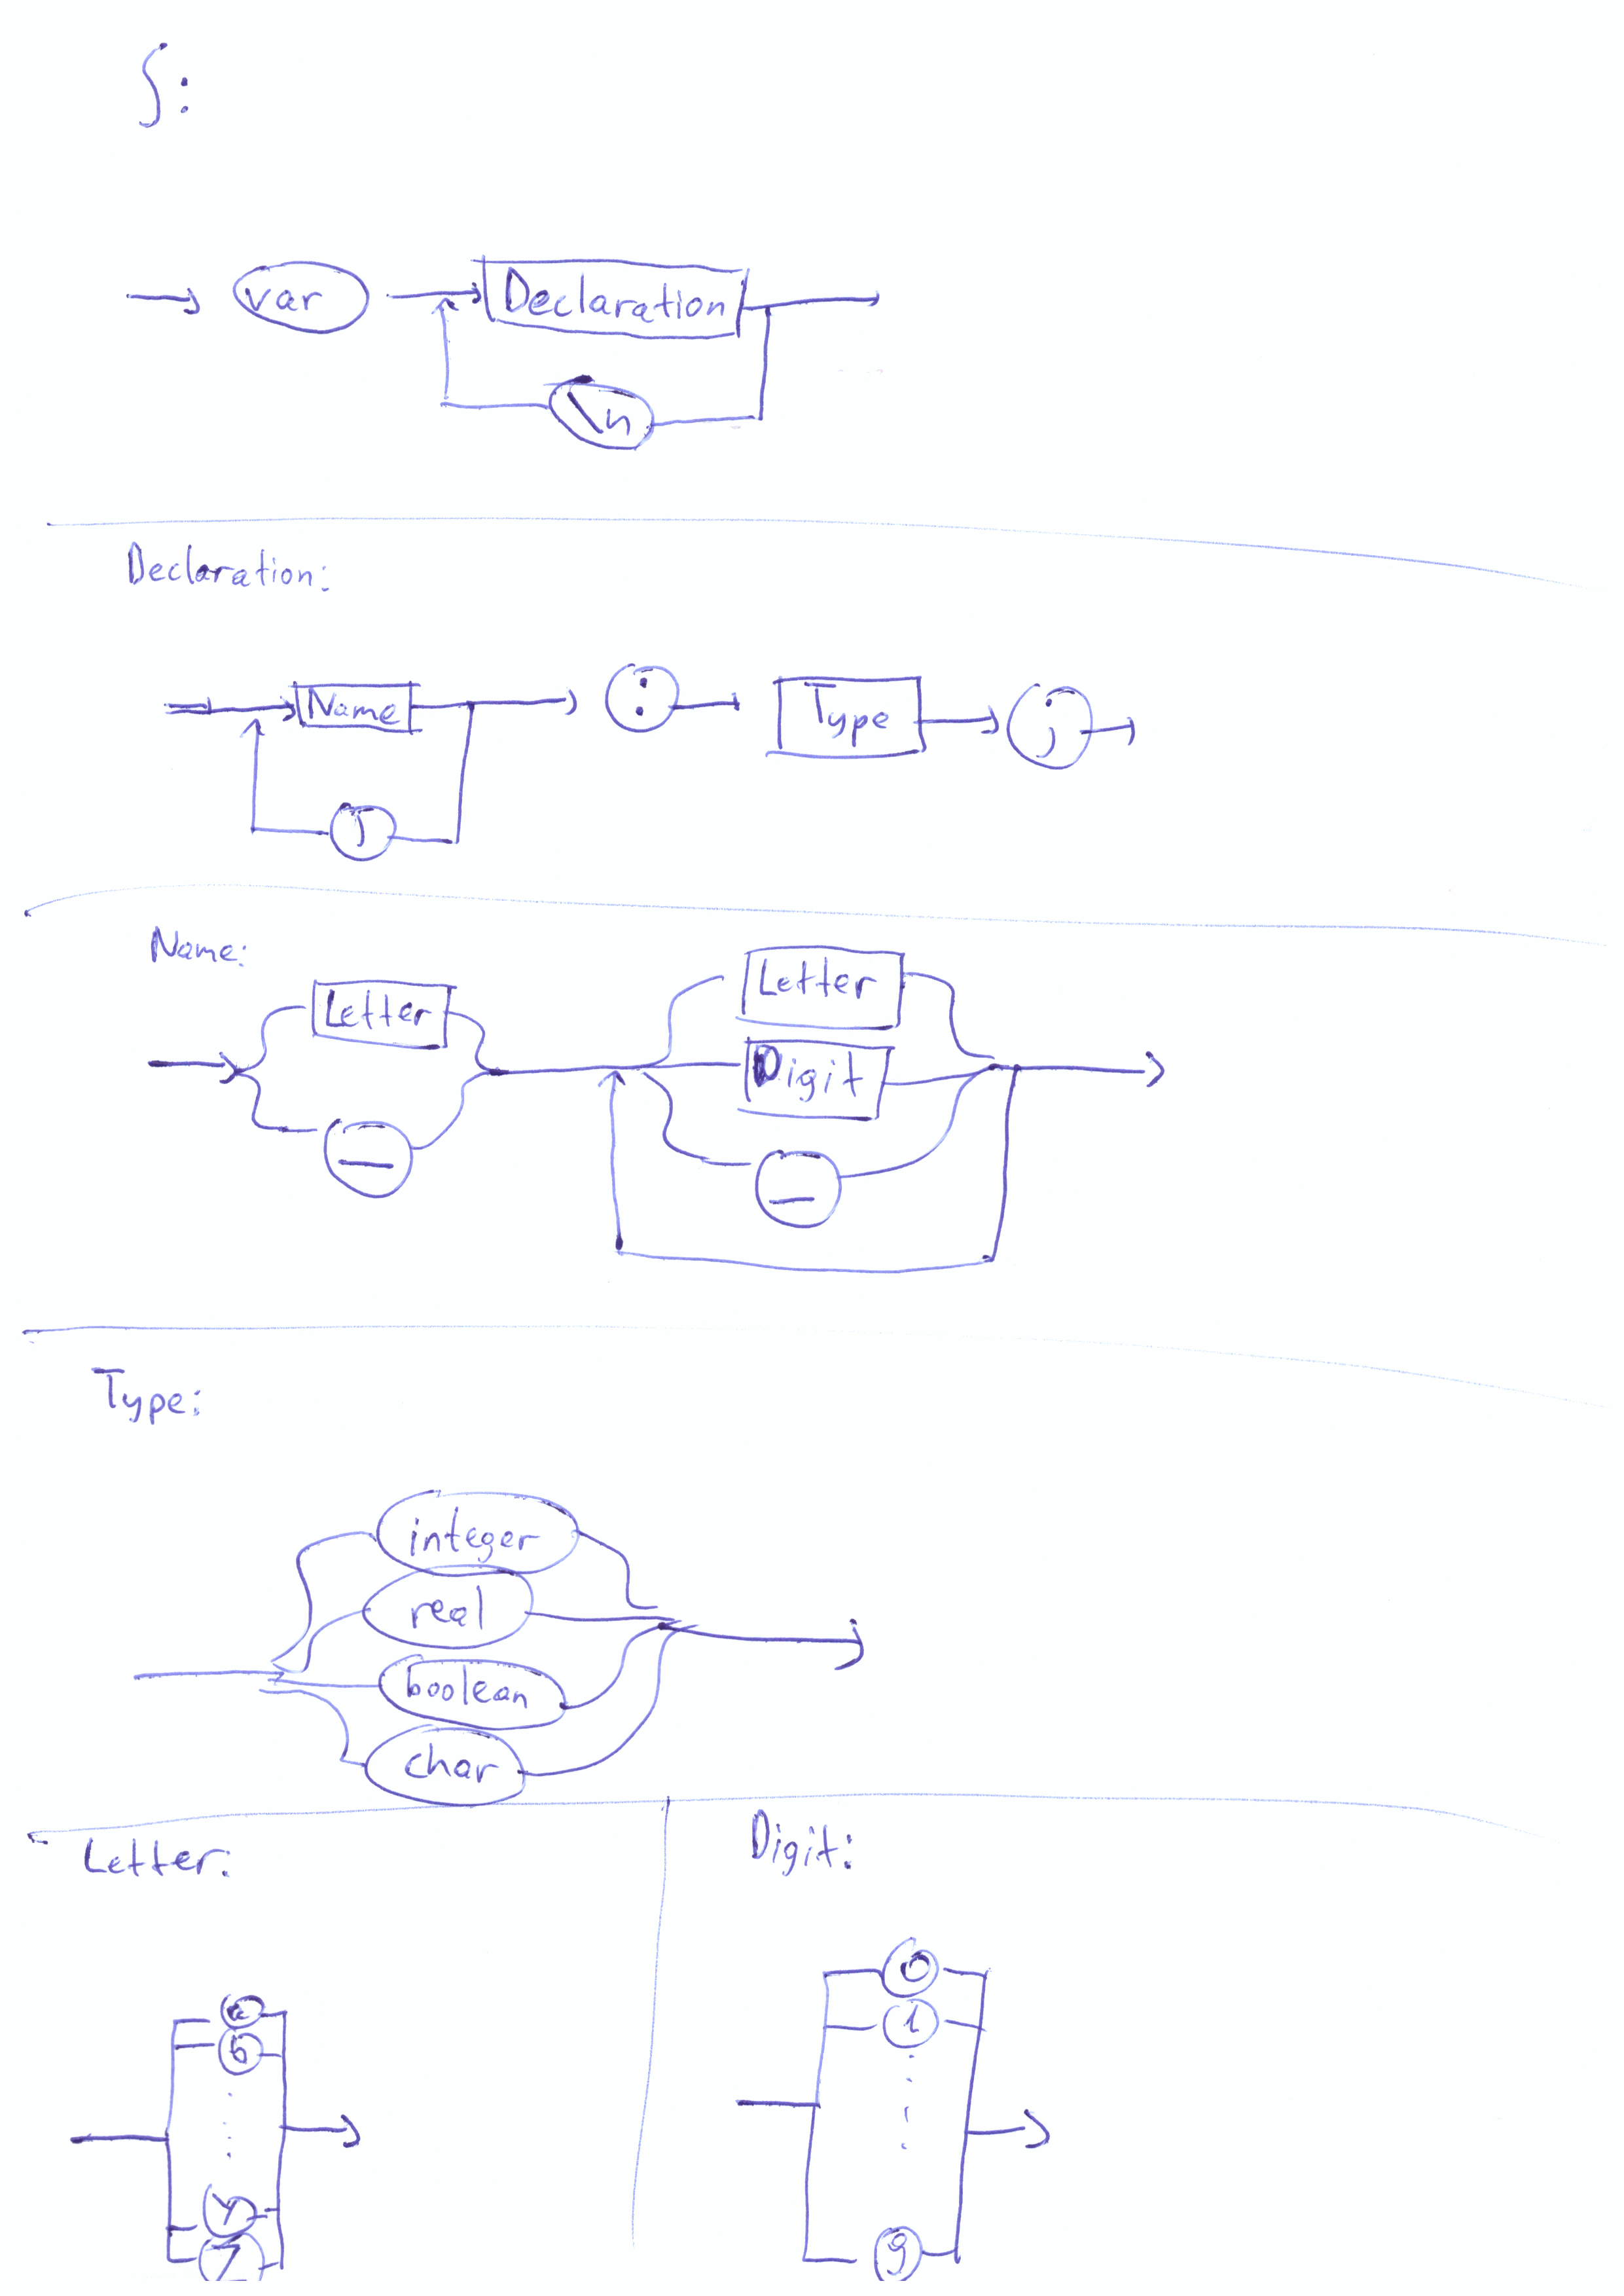 S:
var Declaration
\n
Declaration:
Name : Type ;
,
Name:
Letter Letter
Digit
_ _
Type:
integer
real
boolean
char
Letter: Digit:
a 0
b 1
y
z 9